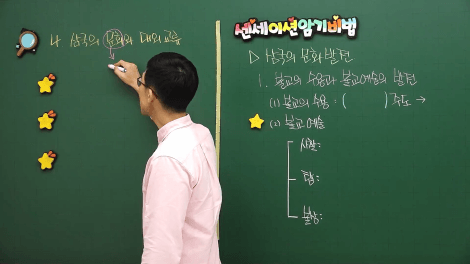 나. 삼국의 문화와 대외교류
선세이션암기비법
▷ 삼국의 문화 발전
1. 불교의 수용과 불교예술의 발전
(1) 불교의 수용 : (      ) 주도 →
(2) 불교 예술
사찰:
탑:
불상: